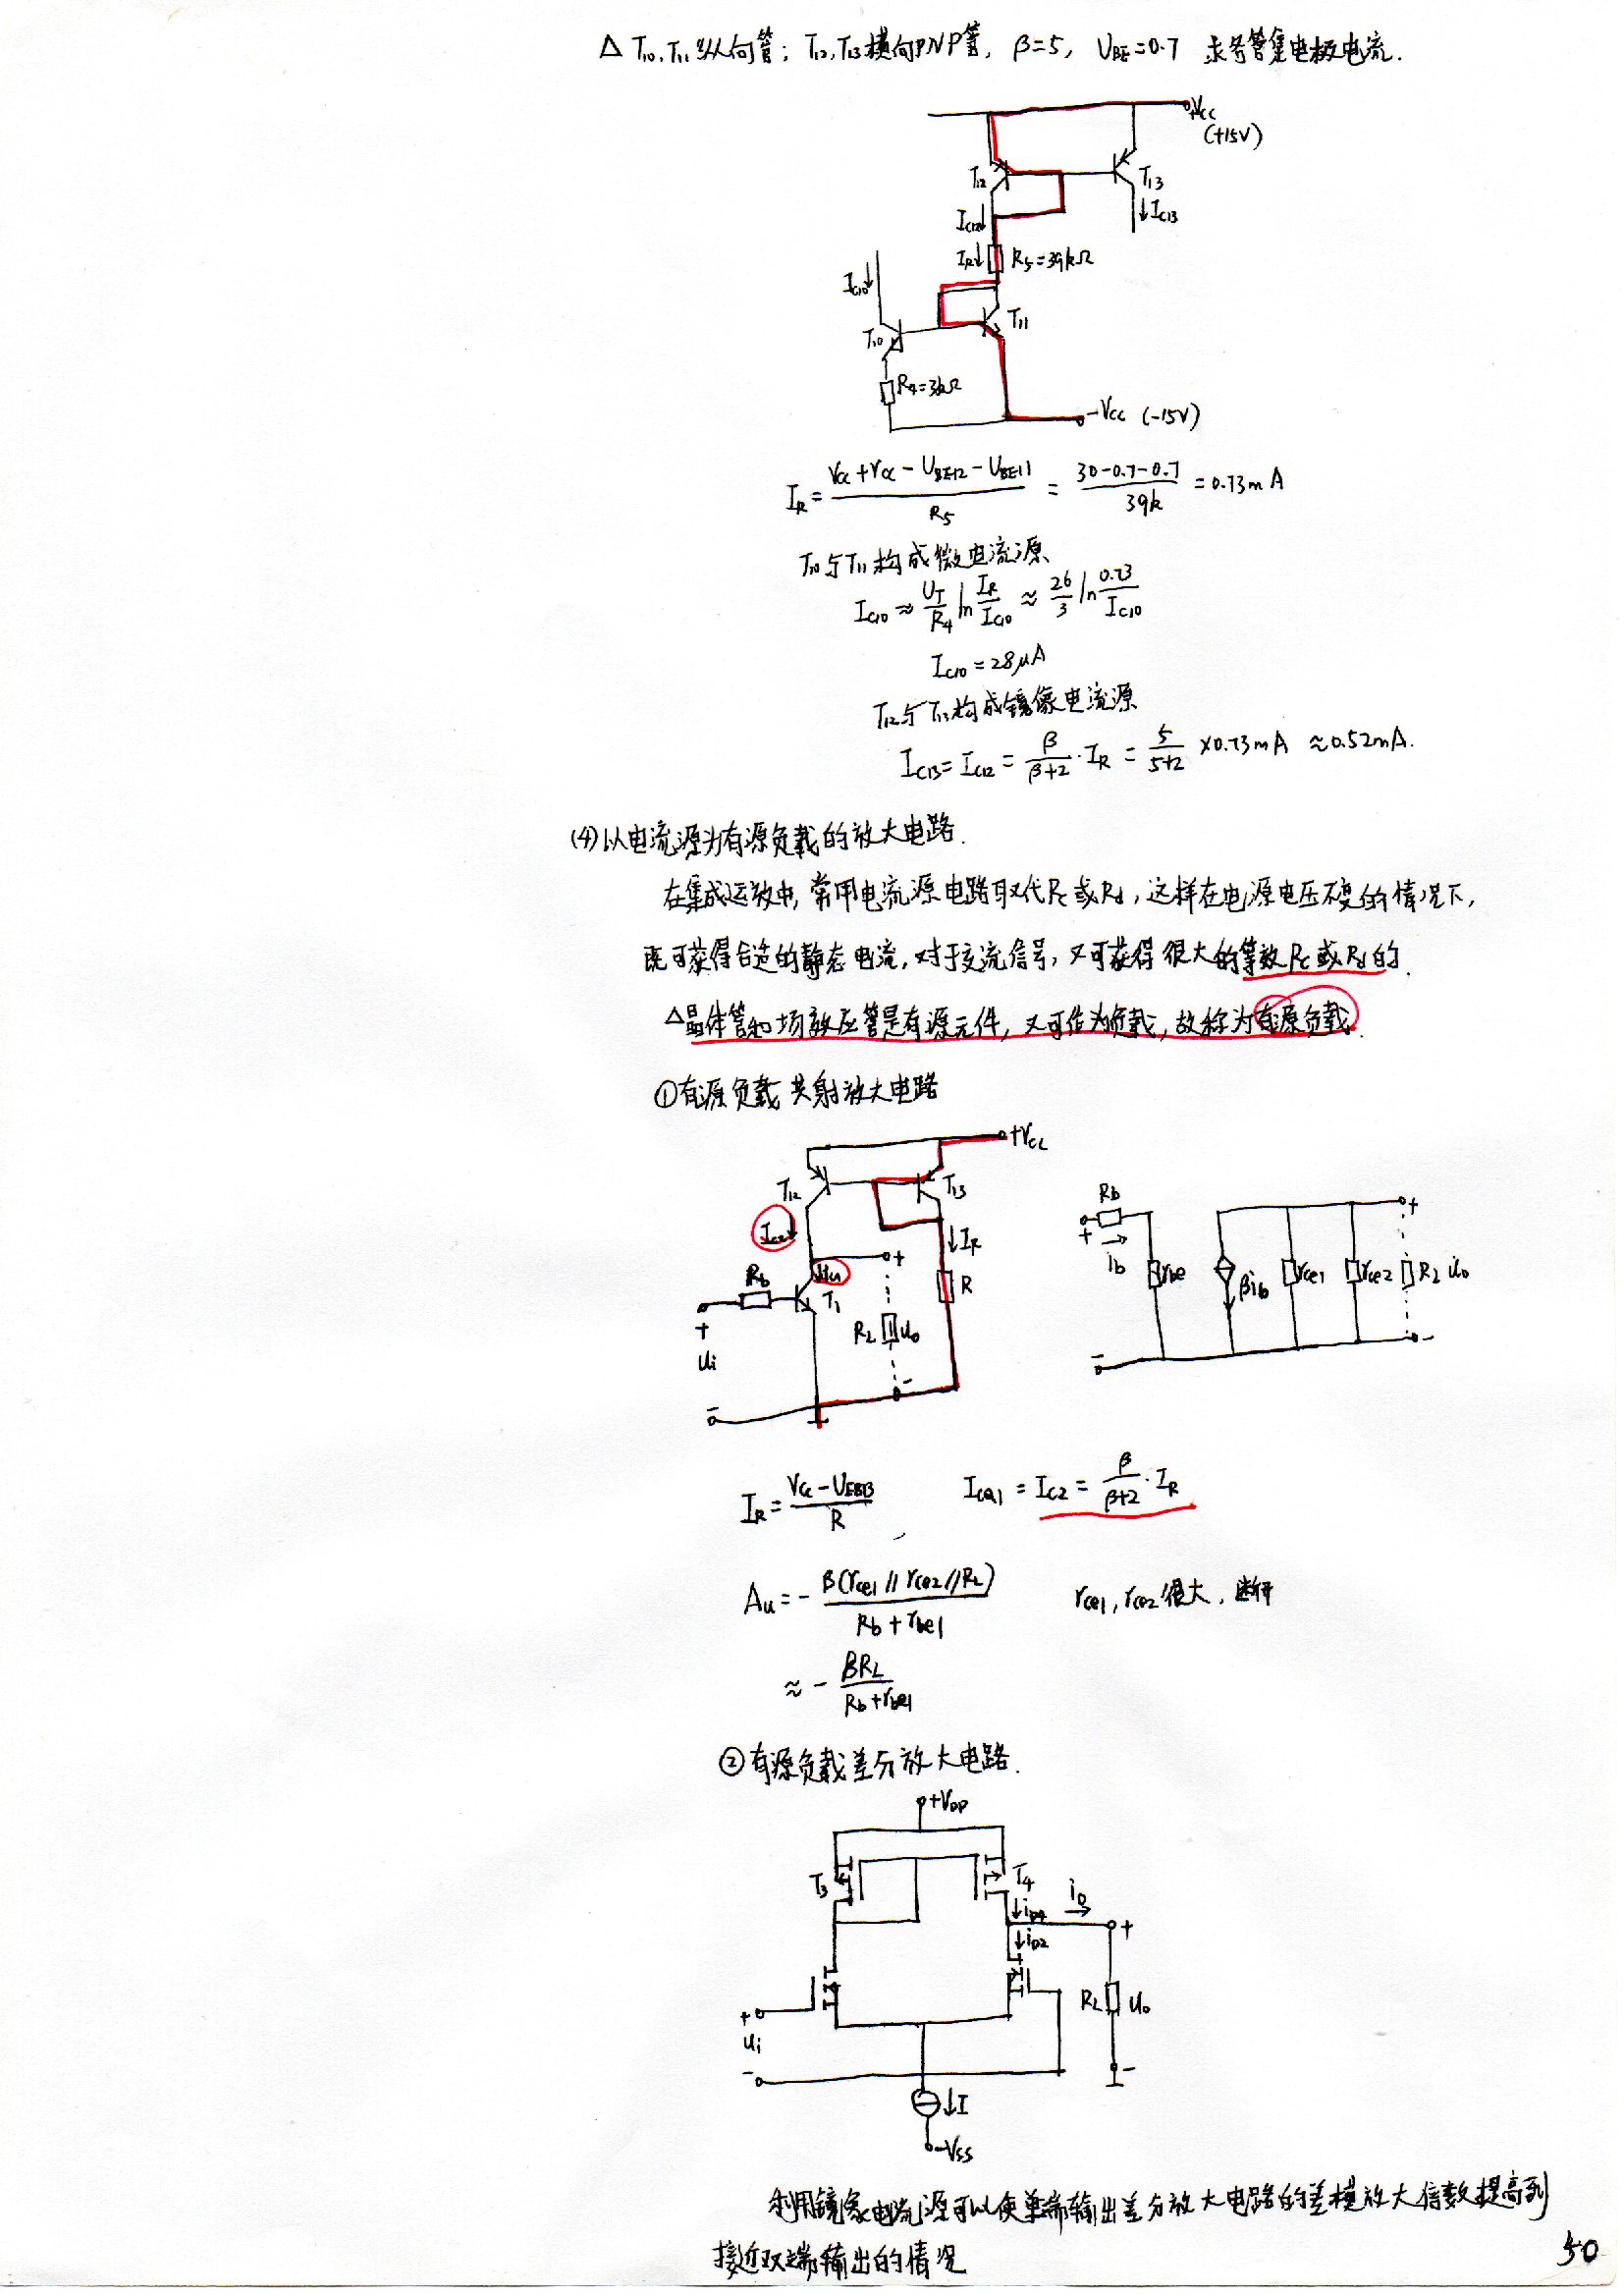 △ T10, T11 纵向管; T12, T13 横向PNP管, β=5, UBE=0.7 求各管集电极电流.
+VCC
(+15V)
T12
T13
IC12↓
↓IC13
IR↓
R5=39kΩ
IC10↓
T10
T11
R4=3kΩ
-VCC (-15V)
IR = (VCC+VCC-UBE12-UBE11)/R5 = (30-0.7-0.7)/39k = 0.73mA
T10与T11构成微电流源
IC10 ≈ UT/R4 ln IR/IC10 ≈ 26/3 ln 0.73/IC10
IC10 = 28μA
T12与T13构成镜像电流源
IC13 = IC12 = β/(β+2) · IR = 5/(5+2) ×0.73mA ≈0.52mA.
(4) 以电流源为有源负载的放大电路.
在集成运放中, 常用电流源电路取代Rc或Rd, 这样在电源电压不变的情况下,
既可获得合适的静态电流, 对于交流信号, 又可获得很大的等效Rc或Rd的.
△晶体管和场效应管是有源元件, 又可作为负载, 故称为有源负载.
①有源负载共射放大电路
+VCC
T12
T13
IC2↓
↓IR
R
Rb
T1
RL
uo
+
ui
-
Rb
+
ib
rbe
βib
rce1
rce2
RL
uo
+
-
IR = (VCC-UEB13)/R
ICQ1 = IC2 = β/(β+2) · IR
Au = - β(rce1//rce2//RL)/(Rb+rbe1)
rce1, rce2很大, 断开
≈ - βRL/(Rb+rbe1)
②有源负载差分放大电路.
+VDD
T3
T4
↓iD4
io
→
↓iD2
+
RL
uo
-
+
ui
-
↓I
-VSS
利用镜象电流源可以使单端输出差分放大电路的差模放大倍数提高到
接近双端输出的情况
50